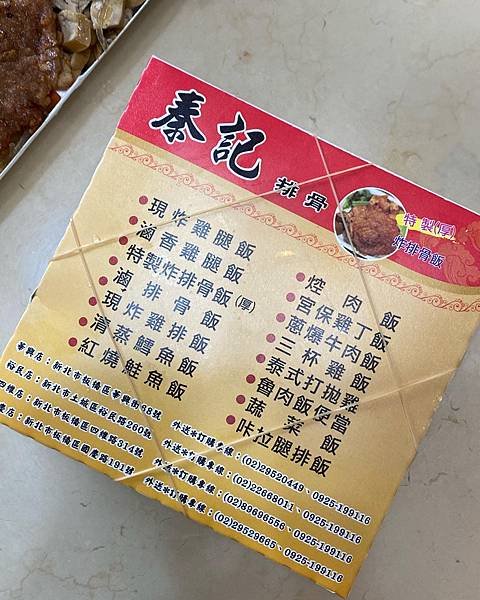 秦記 排骨
特製(厚)
炸排骨飯
現炸雞腿飯
滷香雞腿飯
特製炸排骨飯(厚)
滷排骨飯
現炸雞排飯
清蒸鱈魚飯
紅燒鮭魚飯
焢肉飯
宮保雞丁飯
蔥爆牛肉飯
三杯雞飯
泰式打拋雞
魯肉飯便當
蔬菜飯
咔拉腿排飯
華興店：新北市板橋區華興街48號
外送&訂購專線：(02)29520449、0925-199116
裕民店：新北市土城區裕民路260號
外送&訂購專線：(02)22668011、0925-199116
四維店：新北市板橋區四維路314號
外送&訂購專線：(02)89696556、0925-199116
慶店：新北市板橋區國慶路191號
外送&訂購專線：(02)29529665、0925-199116